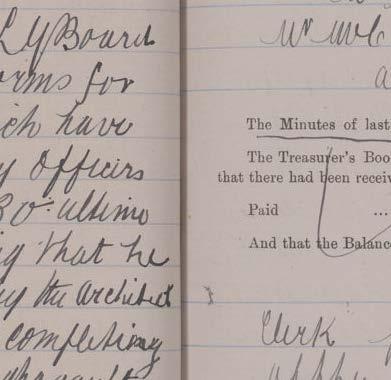 L G Board
orms for
ich have
y Officers
30th ultimo
g that he
by the Architect
completing
The Minutes of last
The Treasurer's Boo
that there had been receiv
Paid ...
And that the Balanc
Clerk